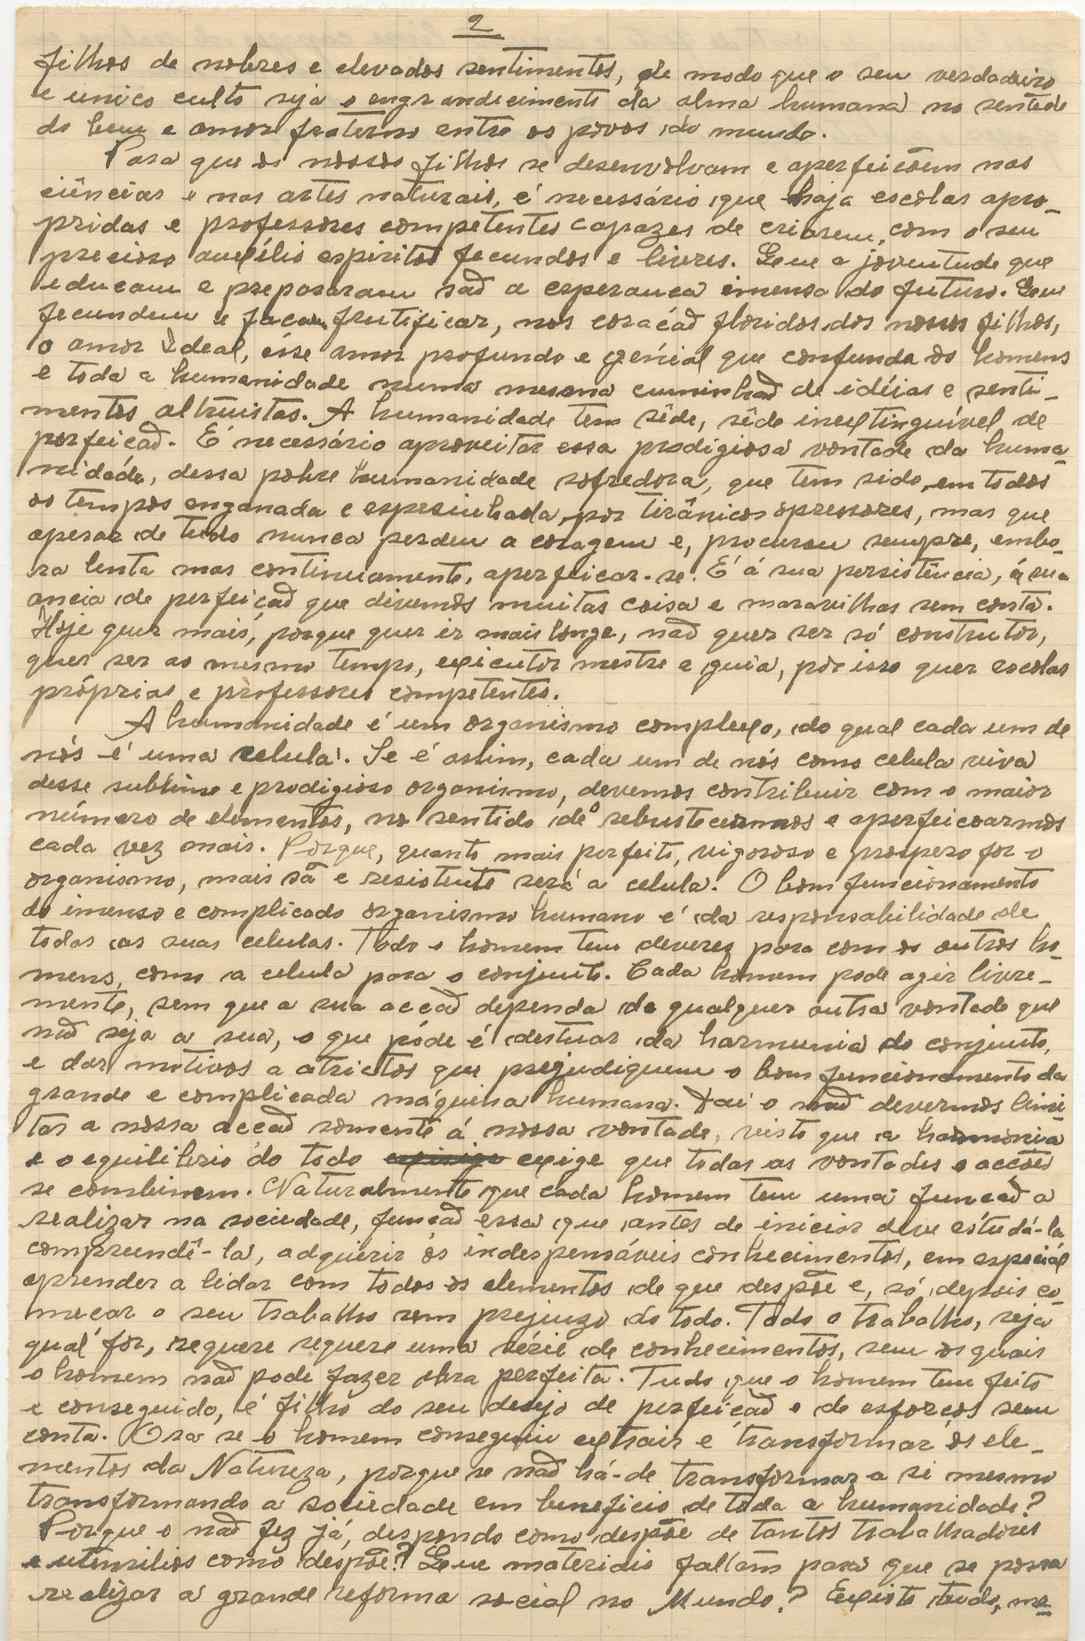 2
filhos de nobres e elevados sentimentos, de modo que o seu verdadeiro
e unico culto seja o engrandecimento da alma humana no sentido
do bem e amor fraterno entre os povos do mundo.
Para que os nossos filhos se desenvolvam e aperfeicõem nas
ciências e nas artes naturais, é necessário que haja escolas apro-
pridas e professores competentes capazes de criarem, com o seu
precioso auxílio espiritos fecundos e livres. Que a joventude que
educam e preparam saõ a esperanca imensa do futuro. Que
fecundem e facam frutificar, nos coraçaõ floridos dos nossos filhos,
o amor Ideal, êsse amor profundo e genial que confunda os homens
e toda a humanidade numa mesma cuminhaõ de idéias e senti-
mentos altruistas. A humanidade tem sêde, sêde inextinguível de
perfeicaõ. É necessário aproveitar essa prodigiosa vontade da huma-
nidade, dessa pobre humanidade sofredora, que tem sido, em todos
os tempos enganada e espesinhada por tirânicos opressores, mas que
apesar de tudo nunca perdeu a coragem e, procurou sempre, embo-
ra lenta mas continuamente, aperfeicar-se. É á sua persistência, á sua
ancia de perfeicaõ que divemos muitas coisa e maravilhas sem conta.
Hoje quer mais, porque quer ir mais longe, naõ quer ser só construtor,
quer ser ao mesmo tempo, exicutor mestre e guia, por isso quer escolas
próprias e professores competentes.
A humanidade é um organismo complexo, do qual cada um de
nós é uma celula. Se é assim, cada um de nós como celula viva
desse sublime e prodigioso organismo, devemos contribuir com o maior
número de elementos, no sentido de o rebustecermos e aperfeicoarmos
cada vez mais. Porque, quanto mais perfeito, vigoroso e prospero for o
organismo, mais sã e resistente será a celula. O bom funcionamento
do imenso e complicado organismo humano é da responsabilidade de
todas as suas celulas. Todo o homem tem deveres para com os outros ho-
mens, como a celula para o conjunto. Cada homem pode agir livre-
mente, sem que a sua accaõ dependa da qualquer outra vontade que
naõ seja a sua, o que póde é destuar da harmunia do conjunto,
e dar motivos a atrictos que prejudiquem o bom funcionamento da
grande e complicada máquina humana. Daí o naõ devermos limi
tar a nossa accaõ somente á nossa vontade, visto que a harmonia
e o equilibrio do todo exige que todas as vontades e accões
se combinem. Naturalmente que cada homem tem uma funcaõ a
realizar na sociedade, funcaõ essa que antes de iniciar deve estudá-la
compreendê-la, adquirir os indespensáveis conhecimentos, em especial
aprender a lidar com todos os elementos de que despõe e, só, depois co-
mecar o seu trabalho sem prejuizo do todo. Todo o trabalho, seja
qual fôr, requere requere uma série de conhecimentos, sem os quais
o homem naõ pode fazer obra perfeita. Tudo que o homem tem feito
e conseguido, é filho do seu desejo de perfeicaõ e de esforcos sem
conta. Ora se o homem conseguiu extrair e transformar os ele-
mentos da Natureza, porque se naõ há-de transformar a si mesmo
transformando a sociedade em beneficio de toda a humanidade?
Porque o naõ fez já, despondo como despõe de tantos trabalhadores
e utensilios como despõe? Que materiais faltam para que se possa
realizar a grande reforma social no Mundo? Existe tudo, me-